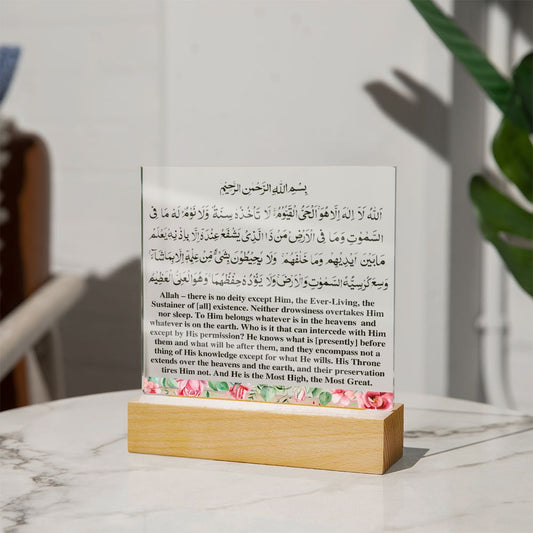 بِسْمِ اللهِ الرَّحْمٰنِ الرَّحِيْمِ
اَللهُ لَاۤ اِلٰهَ اِلَّا هُوَ الْحَيُّ الْقَيُّوْمُ لَا تَأْخُذُهٗ سِنَةٌ وَّلَا نَوْمٌ لَهٗ مَا فِى
السَّمٰوٰتِ وَمَا فِى الْاَرْضِ مَنْ ذَا الَّذِىْ يَشْفَعُ عِنْدَهٗۤ اِلَّا بِاِذْنِهٖ يَعْلَمُ
مَا بَيْنَ اَيْدِيْهِمْ وَمَا خَلْفَهُمْ وَلَا يُحِيْطُوْنَ بِشَىْءٍ مِّنْ عِلْمِهٖۤ اِلَّا بِمَا شَآءَ
وَسِعَ كُرْسِيُّهُ السَّمٰوٰتِ وَالْاَرْضَ وَلَا يَؤُدُهٗ حِفْظُهُمَا وَهُوَ الْعَلِىُّ الْعَظِيْمُ
Allah – there is no deity except Him, the Ever-Living, the
Sustainer of [all] existence. Neither drowsiness overtakes Him
nor sleep. To Him belongs whatever is in the heavens and
whatever is on the earth. Who is it that can intercede with Him
except by His permission? He knows what is [presently] before
them and what will be after them, and they encompass not a
thing of His knowledge except for what He wills. His Throne
extends over the heavens and the earth, and their preservation
tires Him not. And He is the Most High, the Most Great.